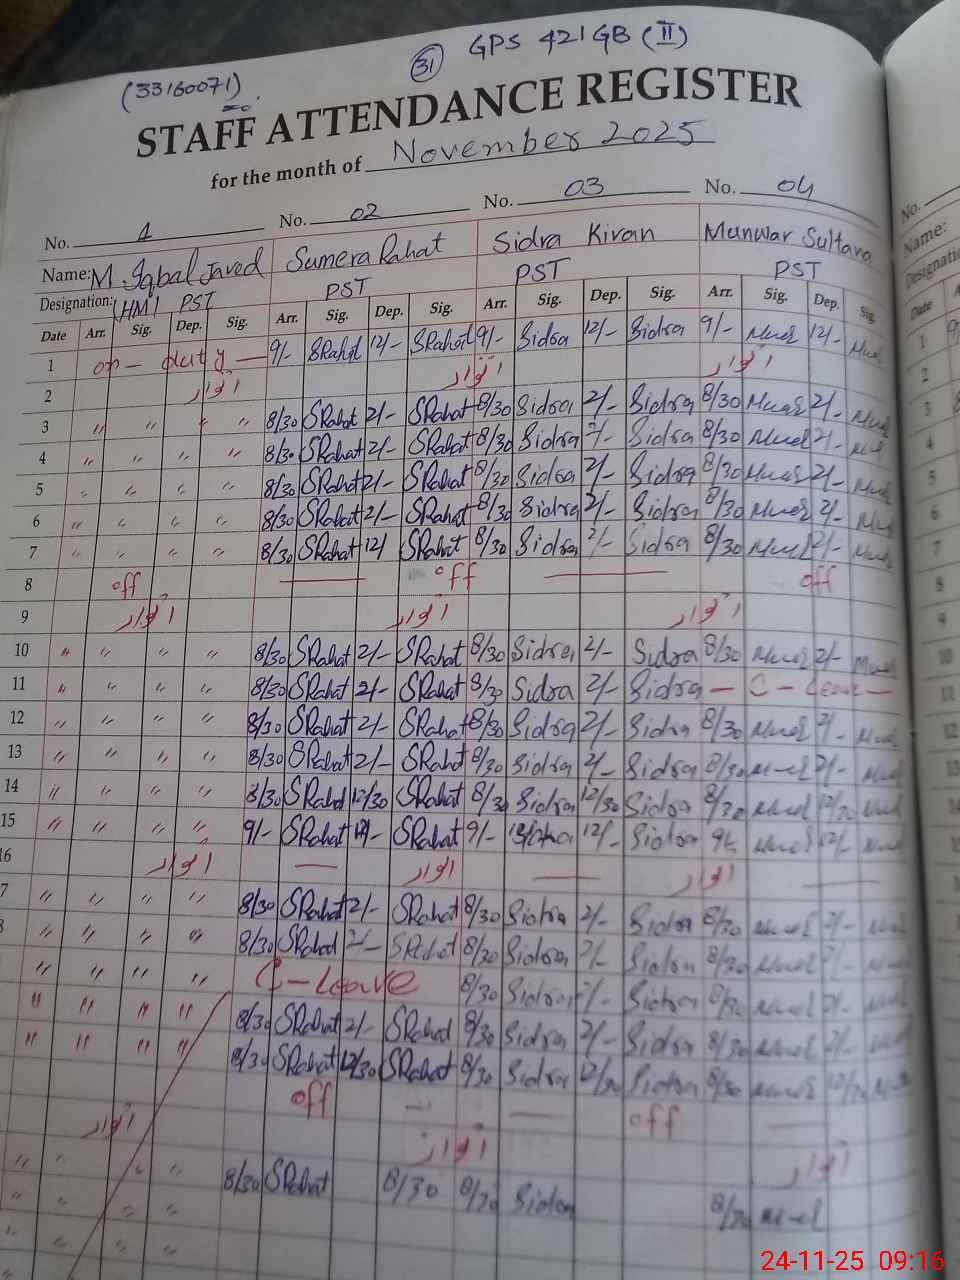 (33160071)
31 GPS 421 GB (II)
STAFF ATTENDANCE REGISTER
for the month of November 2025
No. 1 No. 02 No. 03 No. 04 No.
Name: M. Iqbal Javed Sumera Rahat Sidra Kiran Munwar Sultana Name:
Designation: HM / PST PST PST PST
Date Arr. Sig. Dep. Sig. Arr. Sig. Dep. Sig. Arr. Sig. Dep. Sig. Arr. Sig. Dep. Sig. Date
1 on - duty — 9/- SRahat 12/- SRahat 9/- Sidra 12/- Sidra 9/- 12/- 1
2 اتوار اتوار اتوار 2
3 " " " " 8/30 SRahat 2/- SRahat 8/30 Sidra 2/- Sidra 8/30 2/- 3
4 " " " " 8/30 SRahat 2/- SRahat 8/30 Sidra 2/- Sidra 8/30 2/- 4
5 " " " " 8/30 SRahat 2/- SRahat 8/30 Sidra 2/- Sidra 8/30 2/- 5
6 " " " " 8/30 SRahat 2/- SRahat 8/30 Sidra 2/- Sidra 8/30 2/- 6
7 " " " " 8/30 SRahat 12/ SRahat 8/30 Sidra 2/- Sidra 8/30 2/- 7
8 off — off — off 8
9 اتوار اتوار اتوار 9
10 " " " " 8/30 SRahat 2/- SRahat 8/30 Sidra 2/- Sidra 8/30 2/- 10
11 " " " " 8/30 SRahat 2/- SRahat 8/30 Sidra 2/- Sidra — C - Leave — 11
12 " " " " 8/30 SRahat 2/- SRahat 8/30 Sidra 2/- Sidra 8/30 2/- 12
13 " " " " 8/30 SRahat 2/- SRahat 8/30 Sidra 2/- Sidra 8/30 2/- 13
14 " " " " 8/30 SRahat 12/30 SRahat 8/30 Sidra 12/30 Sidra 8/30 12/30 14
15 " " " " 9/- SRahat 12/- SRahat 9/- 12/- Sidra 9/- 12/-
16 اتوار — اتوار — اتوار —
7 " " " " 8/30 SRahat 2/- SRahat 8/30 Sidra 2/- Sidra 8/30 2/-
8 " " " " 8/30 SRahat 2/- SRahat 8/30 Sidra 2/- Sidra 8/30 2/-
" " " " C - Leave 8/30 Sidra 2/- Sidra 8/30 2/-
" " " " 8/30 SRahat 2/- SRahat 8/30 Sidra 2/- Sidra 8/30 2/-
" " " " 8/30 SRahat 12/30 SRahat 8/30 Sidra 12/30 Sidra 8/30 12/30
off — — off —
اتوار اتوار اتوار
" " " " 8/30 SRahat 8/30 8/30 Sidra 8/30
" " " "
" " "
24-11-25 09:16